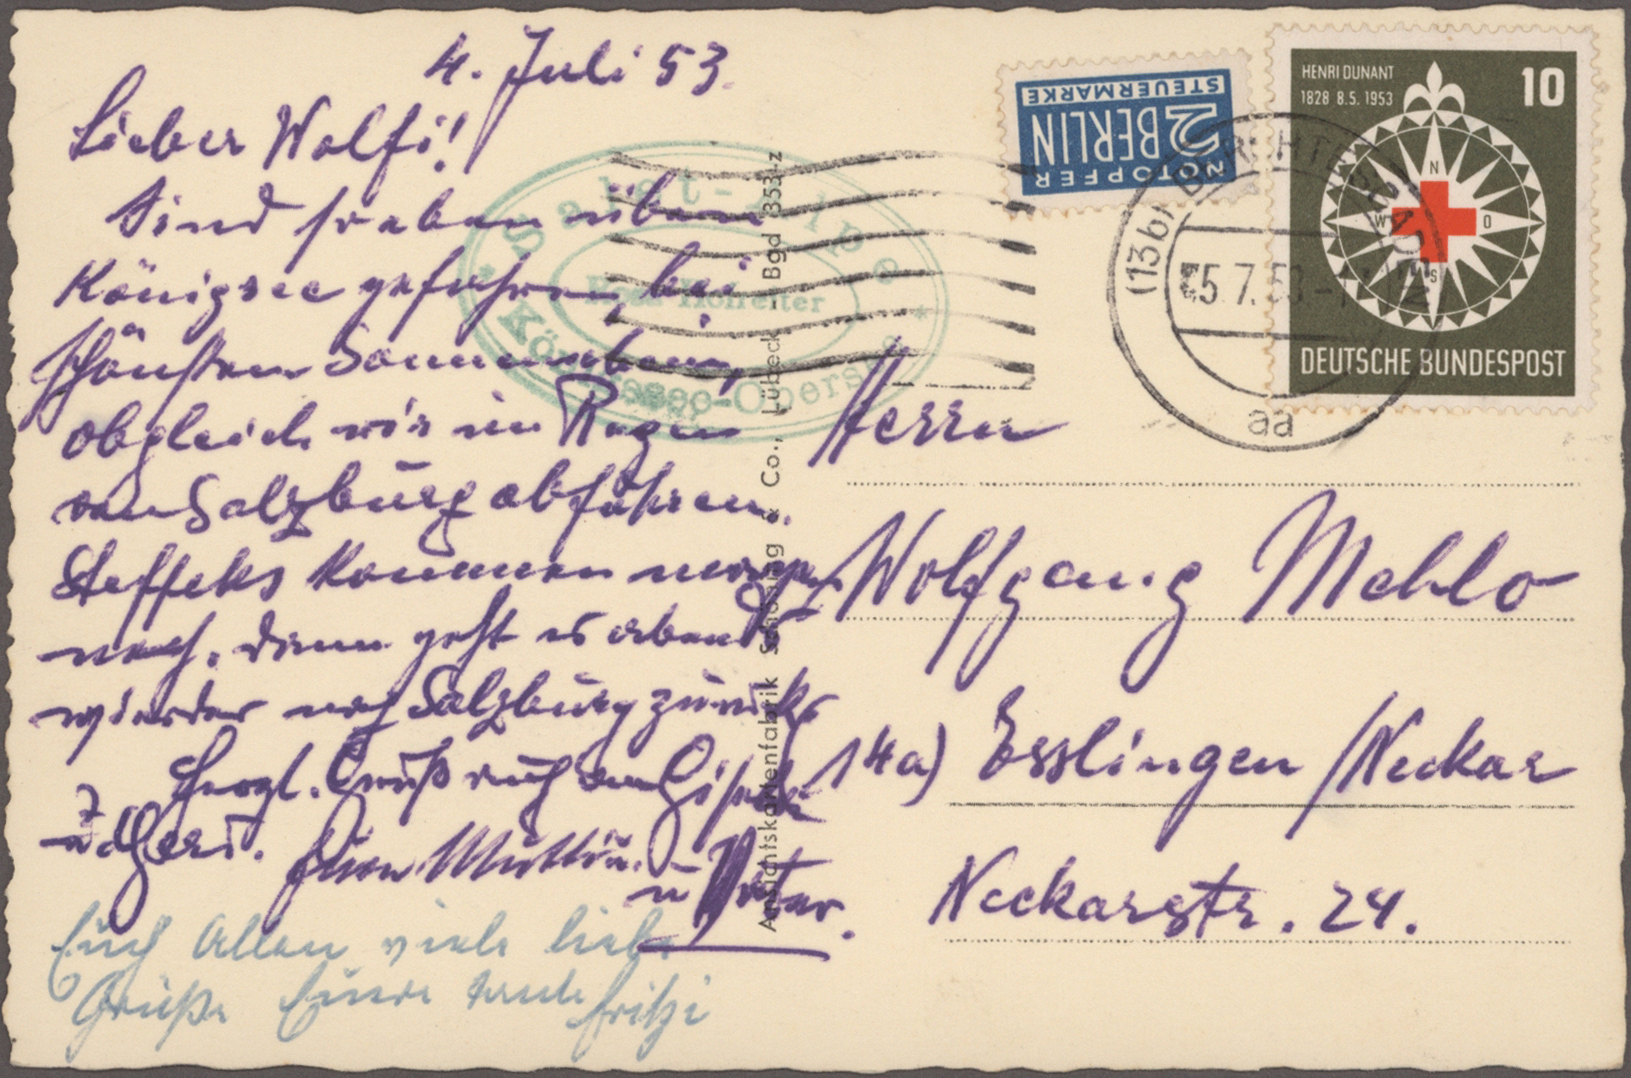 4. Juli 53.
Lieber Wolfi!
Sind soeben übern
Königsee gefahren, bei
schönstem Sonnenschein,
obgleich wir im Regen
von Salzburg abfuhren.
Steffeks kommen morgen
nach, dann geht es abends
wieder nach Salzburg zurück.
Herzl. Gruß auch an
u. Gerd. Eure Mutti
u Vater.
Euch Allen viele liebe
Grüße Eure Tante Fritzi
Salet-Alpe
Königssee-Obersee
Ansichtskartenfabrik Schöning & Co., Lübeck - Bgd 353 z
NOTOPFER
2 BERLIN
STEUERMARKE
HENRI DUNANT
1828 8.5. 1953
10
N
W O
S
DEUTSCHE BUNDESPOST
(13b) BERCHTESGADEN
5.7.53.
aa
Herrn
Wolfgang Mehlo
14a) Esslingen/Neckar
Neckarstr. 24.